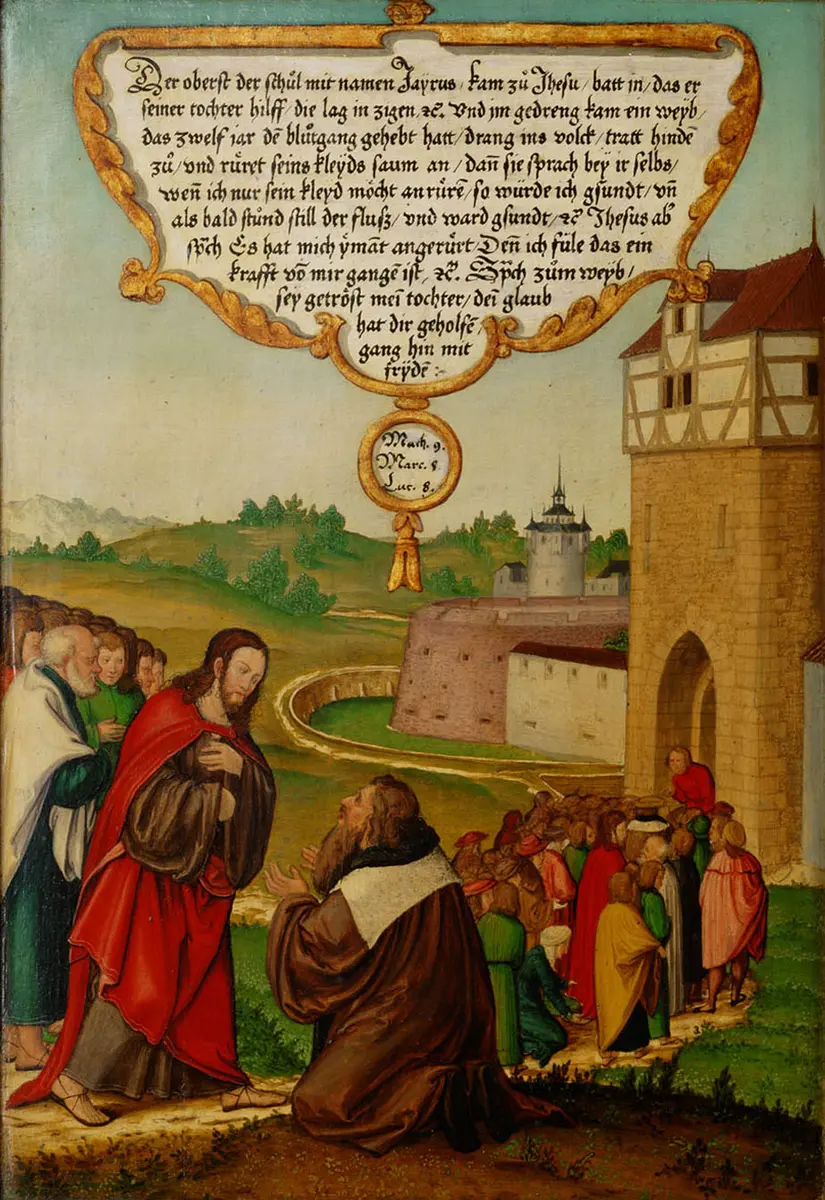 Der oberst der schůl mit namen Jayrus / kam zů Jhesu / batt in / das er
seiner tochter hilff / die lag in zigen / ꝛc. Vnd jm gedreng kam ein weyb /
das zwelf jar dē blůtgang gehebt hatt / drang ins volck / tratt hindē
zů / vnd růret seins kleyds saum an / dañ sie sprach bey ir selbs /
weñ ich nur sein kleyd möcht an rürē / so würde ich gsundt / vñ
als bald stůnd still der flusz / vnd ward gsundt / ꝛc Jhesus ab
spch Es hat mich ÿmāt angerürt Deñ ich füle das ein
krafft vō mir gangē ist / ꝛc. Spch zům weyb /
sey getröst meī tochter / deī glaub
hat dir geholfē /
gang hin mit
frydē :
Math. 9.
Marc. 5
Luc. 8.